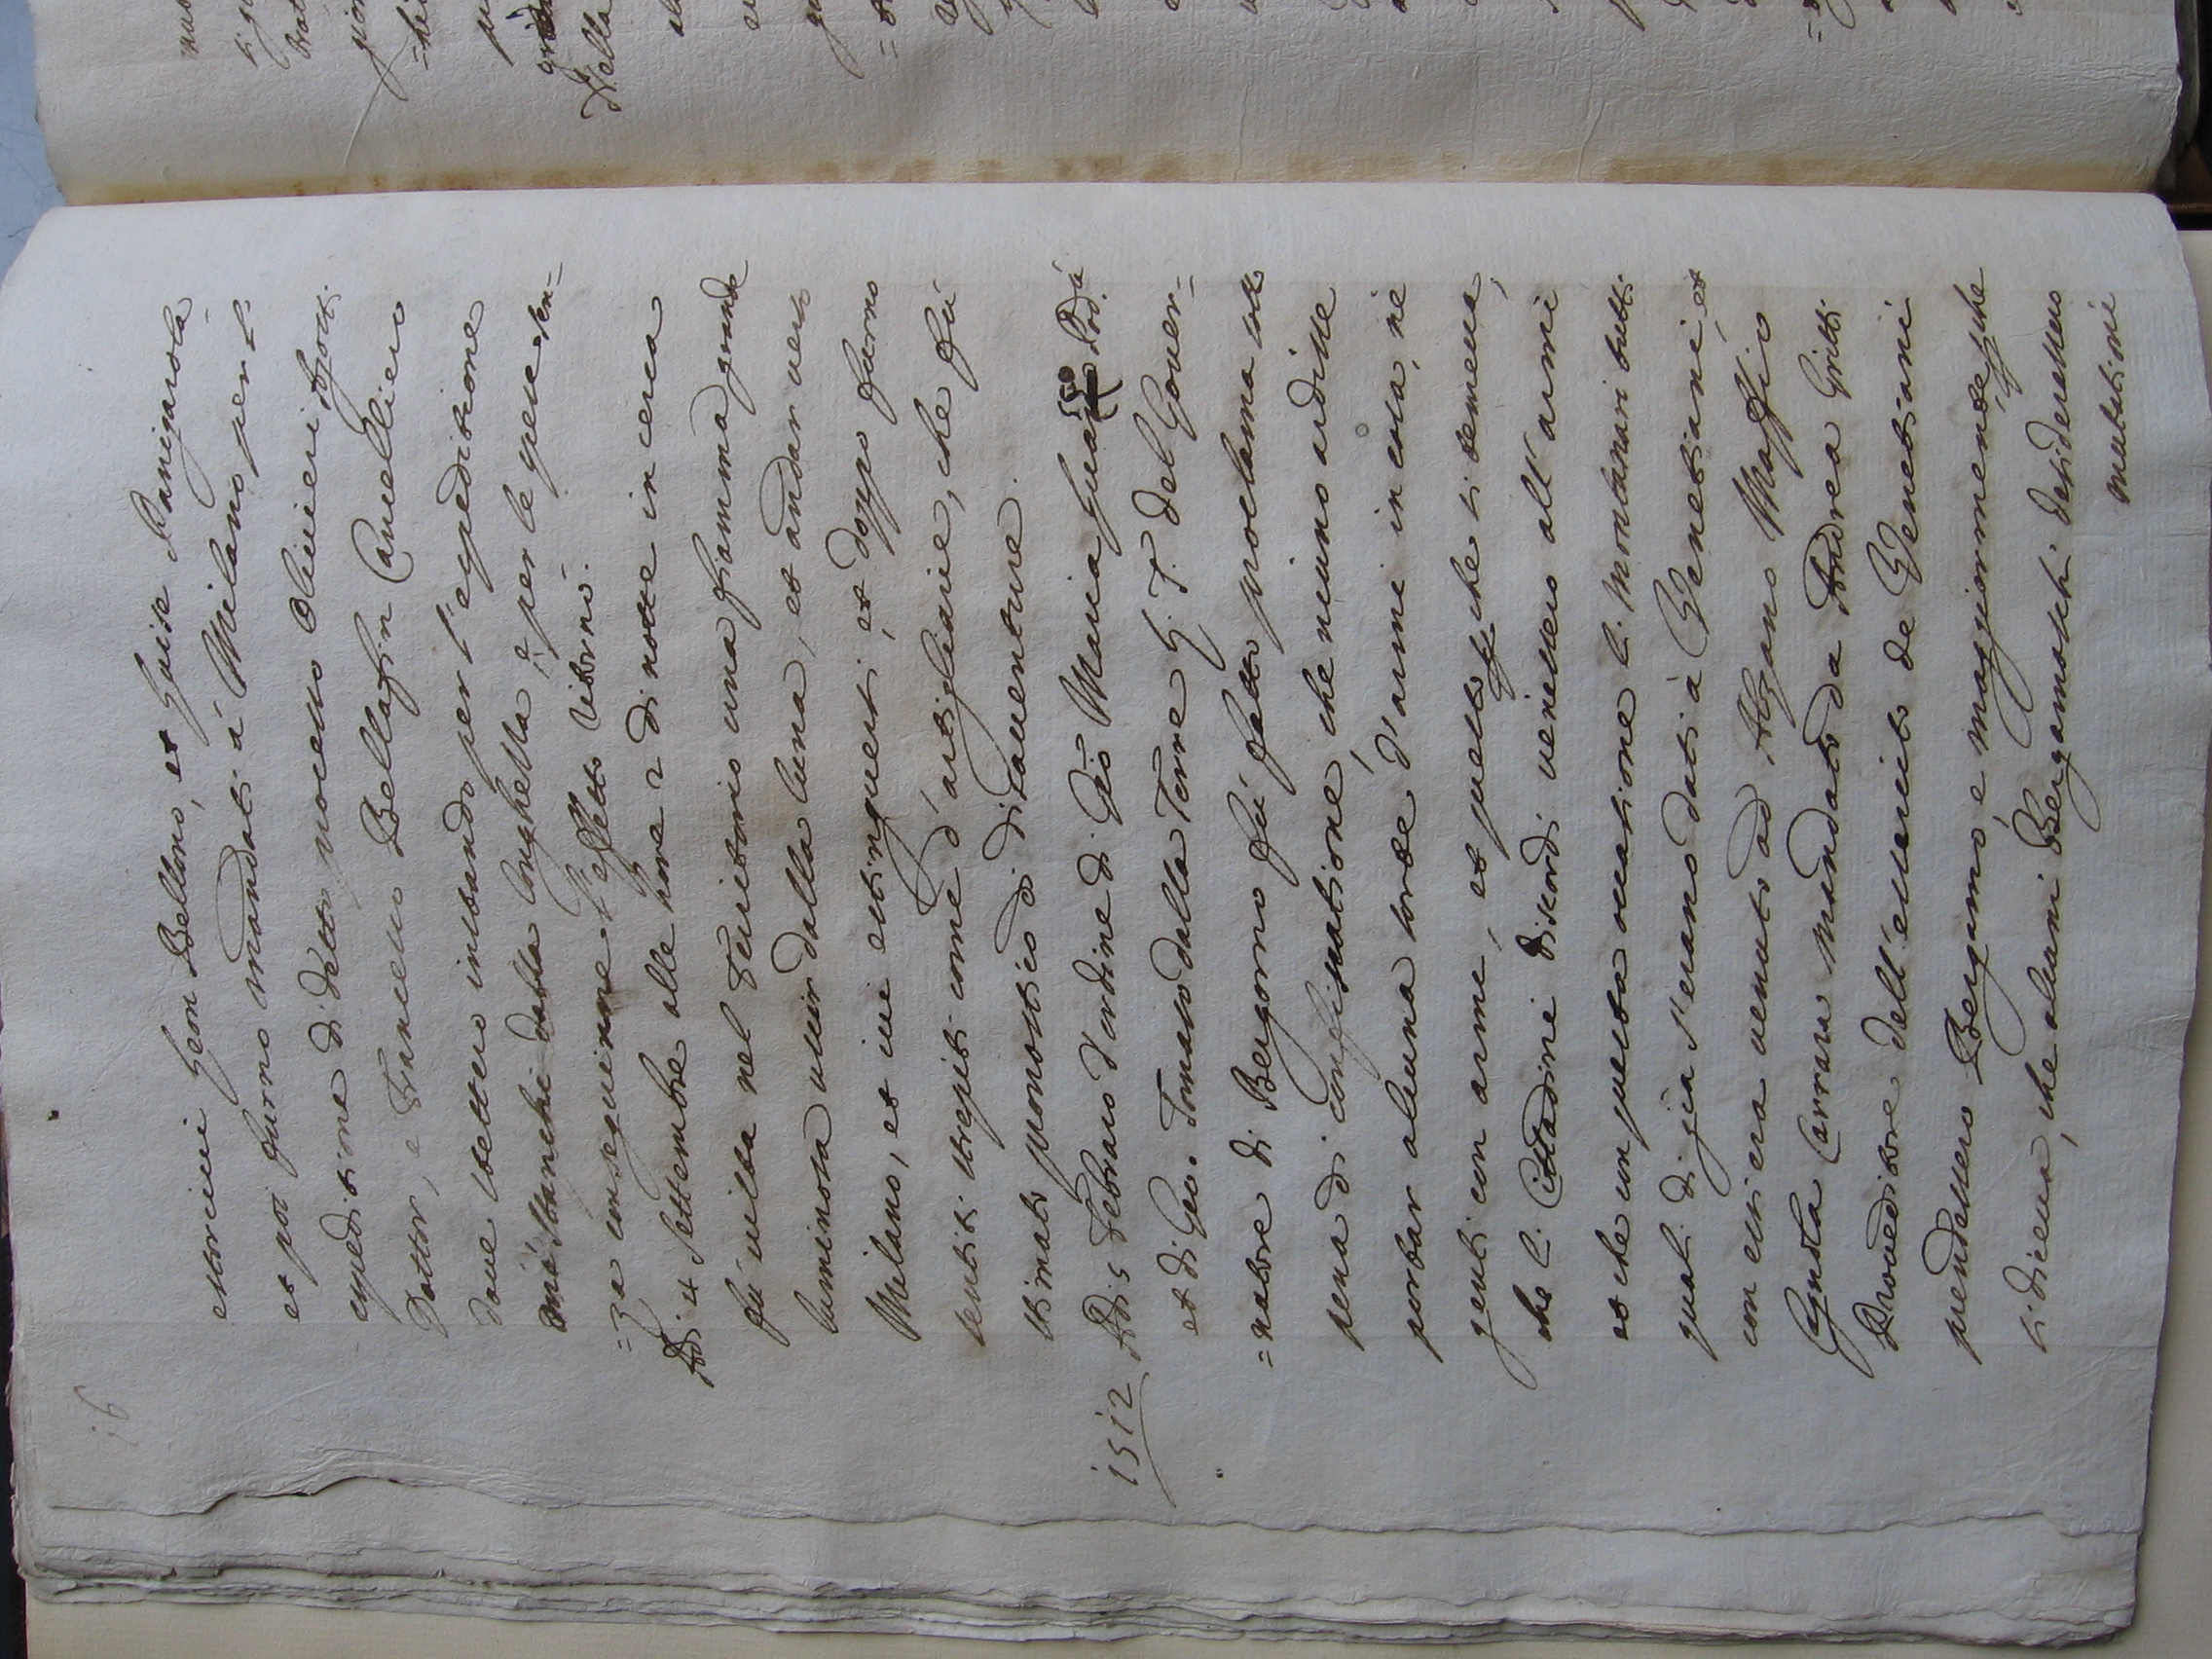 16
estorsivi Heon Bellono, et Guise Panigarola
et poi furno mandati à Milano per l'
espeditione di detto processo Olivieri Agosti
Dottor, e Francesco Bellafin Cancelliero
dove stettero instando per l'espeditione
mà stanchi dalla longhezza, e per le spese sen=
=za conseguirne l'effetto ritornò.
Adi 4 settembre alle hore 2 di notte in cerca
fù vista nel Territorio una fiamma grande
luminosa uscir dalla luna, et andar verso
Milano, et ivi estinguersi, et doppo furno
sentiti strepiti come d'artigliarie, che fù
stimato pronostico di disaventure.
1512 Adi 5 Febraro d'ordine di Gio Maria Pod.à
et di Geo. Tomaso dalla Torre L. T. del Gover=
=natore di Bergomo fù fatto proclama sotto
pena di confiscatione, che niuno ardisse
portar alcuna sorte d'armi in cosa, nè
genti con arme, et questo perche si temeva,
che li Cittadini discordi venissero all'armi
et che con questa occasione li Montanari tutti
quali di già s'erano dati à Venetiani, et
con essi era venuto ad Alzano Maffio
Cagnola Carrara mandato da Andrea Gritti
Proveditore dell'essercito de Venetiani
prendessero Bergamo, e maggiormente perche
si diceva, che alcuni Bergamaschi desiderassero
mutationi